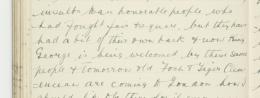 insult an honorable people, who
had fought fair & square. but they have
had a bit of their own back & now King
George is being welcomed by these same
people & tomorrow old Foch & Tiger Clem-
enceau are coming to London how
should